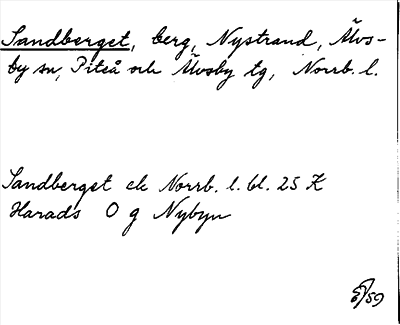 Sandberget, berg, Nystrand, Älvs-
by sn, Piteå och Älvsby tg, Norrb. l.
Sandberget ek Norrb. l. bl. 25 K
Harads O g Nybyn